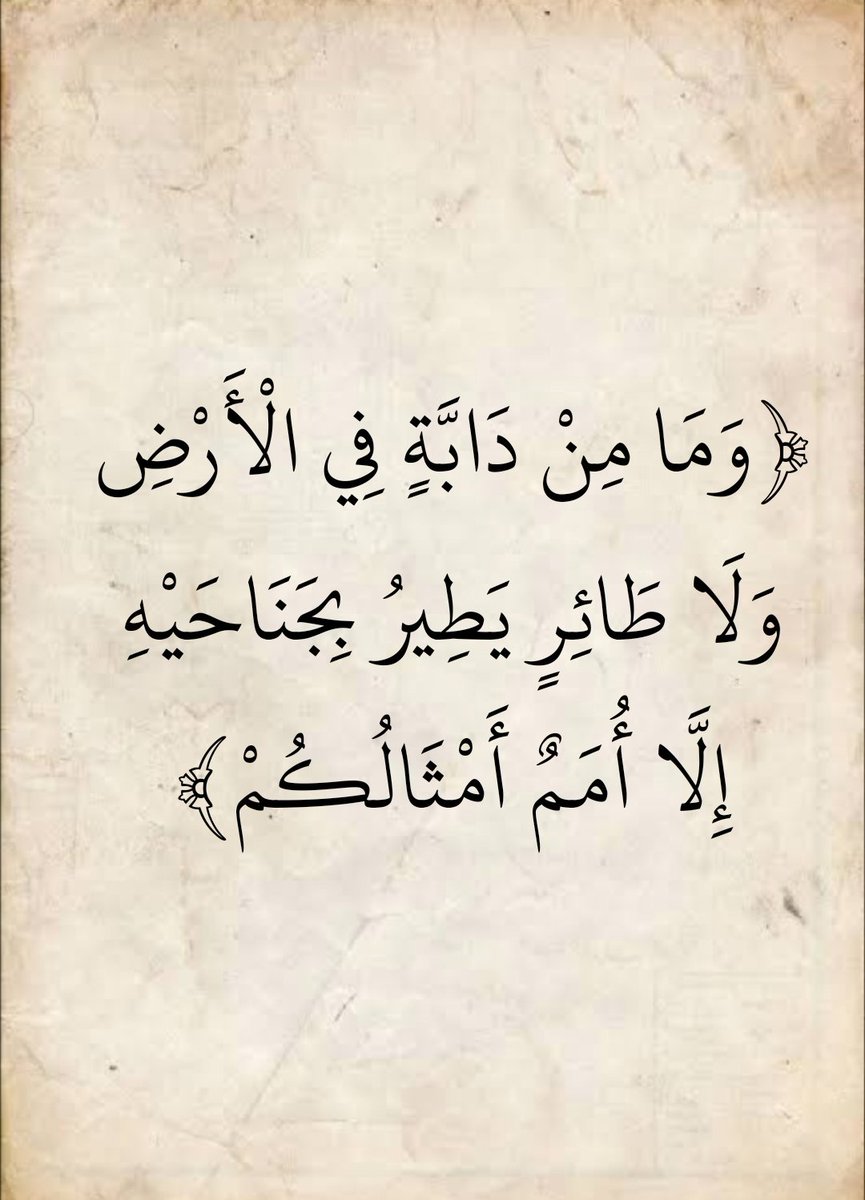 ﴿وَمَا مِنْ دَابَّةٍ فِي الْأَرْضِ
وَلَا طَائِرٍ يَطِيرُ بِجَنَاحَيْهِ
إِلَّا أُمَمٌ أَمْثَالُكُمْ﴾